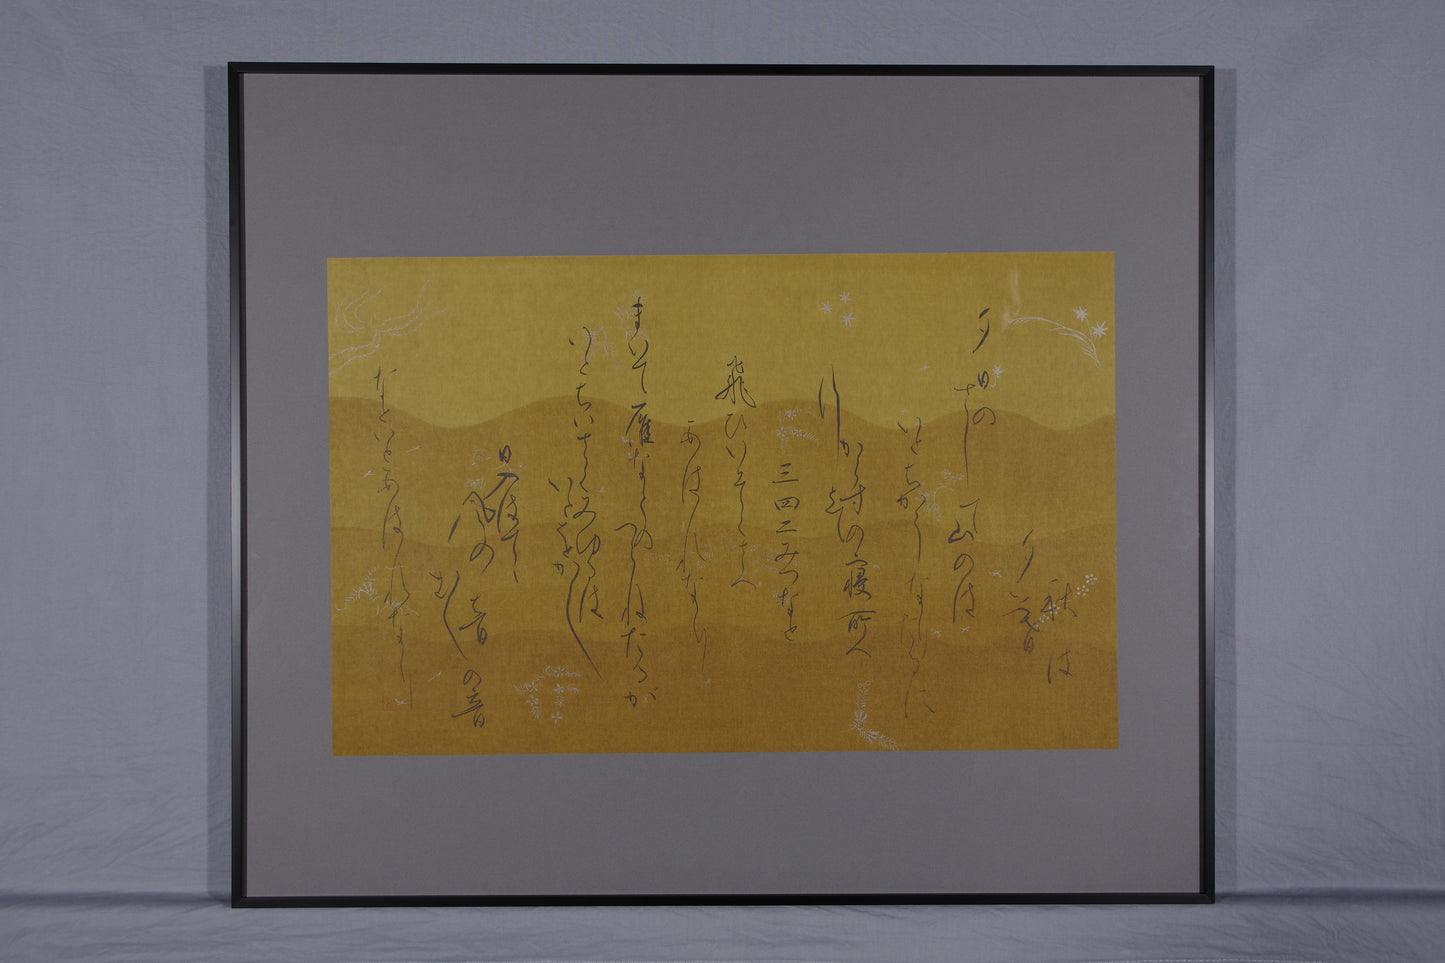 秋は
夕暮
夕日の
さして山のは
いとちかうなりたるに
からすの寝所へ
行
三四二みつなと
飛ひいそくさへ
あはれなり
まいて雁なとのつらねたるが
いとちいさくみゆるは
いとをかし
日入はてて
風の音
むしの音
なといとあはれなり